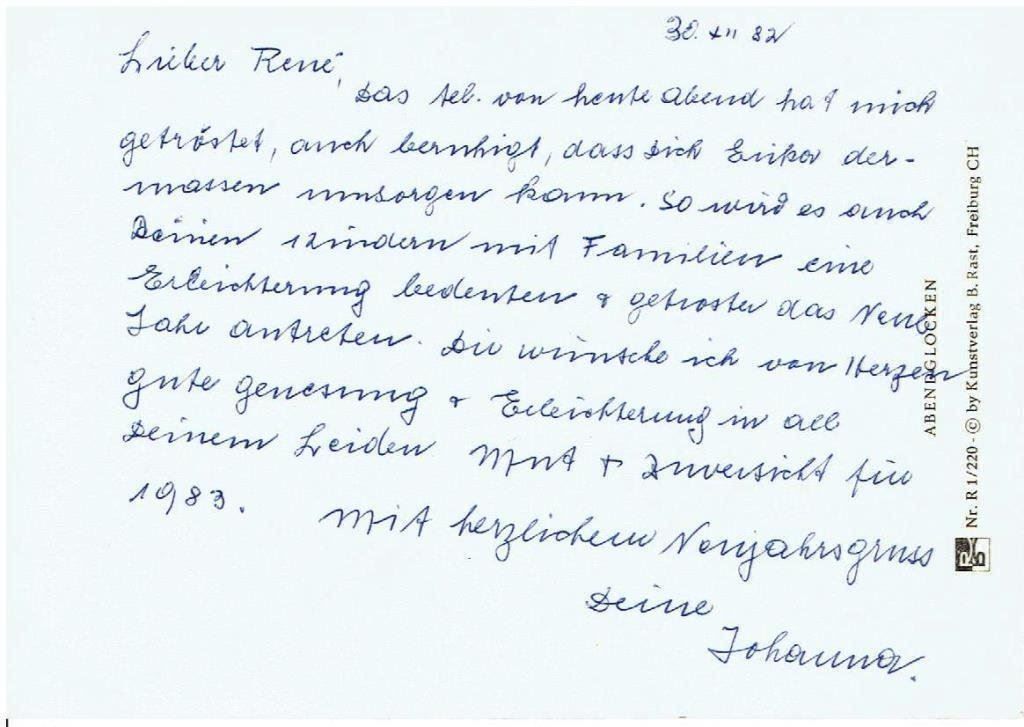 30. XII 82
Lieber René,
Das tel. von heute Abend hat mich
getröstet, auch beruhigt, dass Dich Erika der-
massen umsorgen kann. So wird es auch
Deinen Kindern mit Familien eine
Erleichterung bedeuten & getroster das Neue
Jahr antreten. Dir wünsche ich von Herzen
gute genesung & Erleichterung in all
Deinem Leiden Mut + Zuversicht für
1983.
Mit herzlichem Neujahrsgruss
Deine
Johanna.
ABENDGLOCKEN
Nr. R 1/220 - © by Kunstverlag B. Rast, Freiburg CH